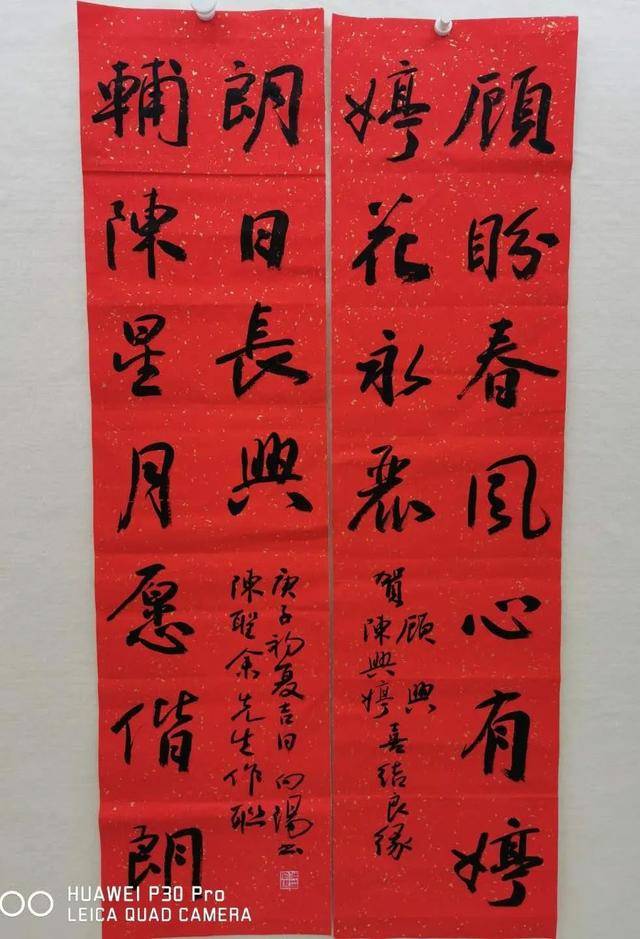 顧盼春風心有婷
婷花永麗
賀
顧興
陳興婷
喜結良緣
輔陳星月愿偕朗
朗日長興
庚子初夏吉日 向書
陳余先生作聯
HUAWEI P30 Pro
LEICA QUAD CAMERA